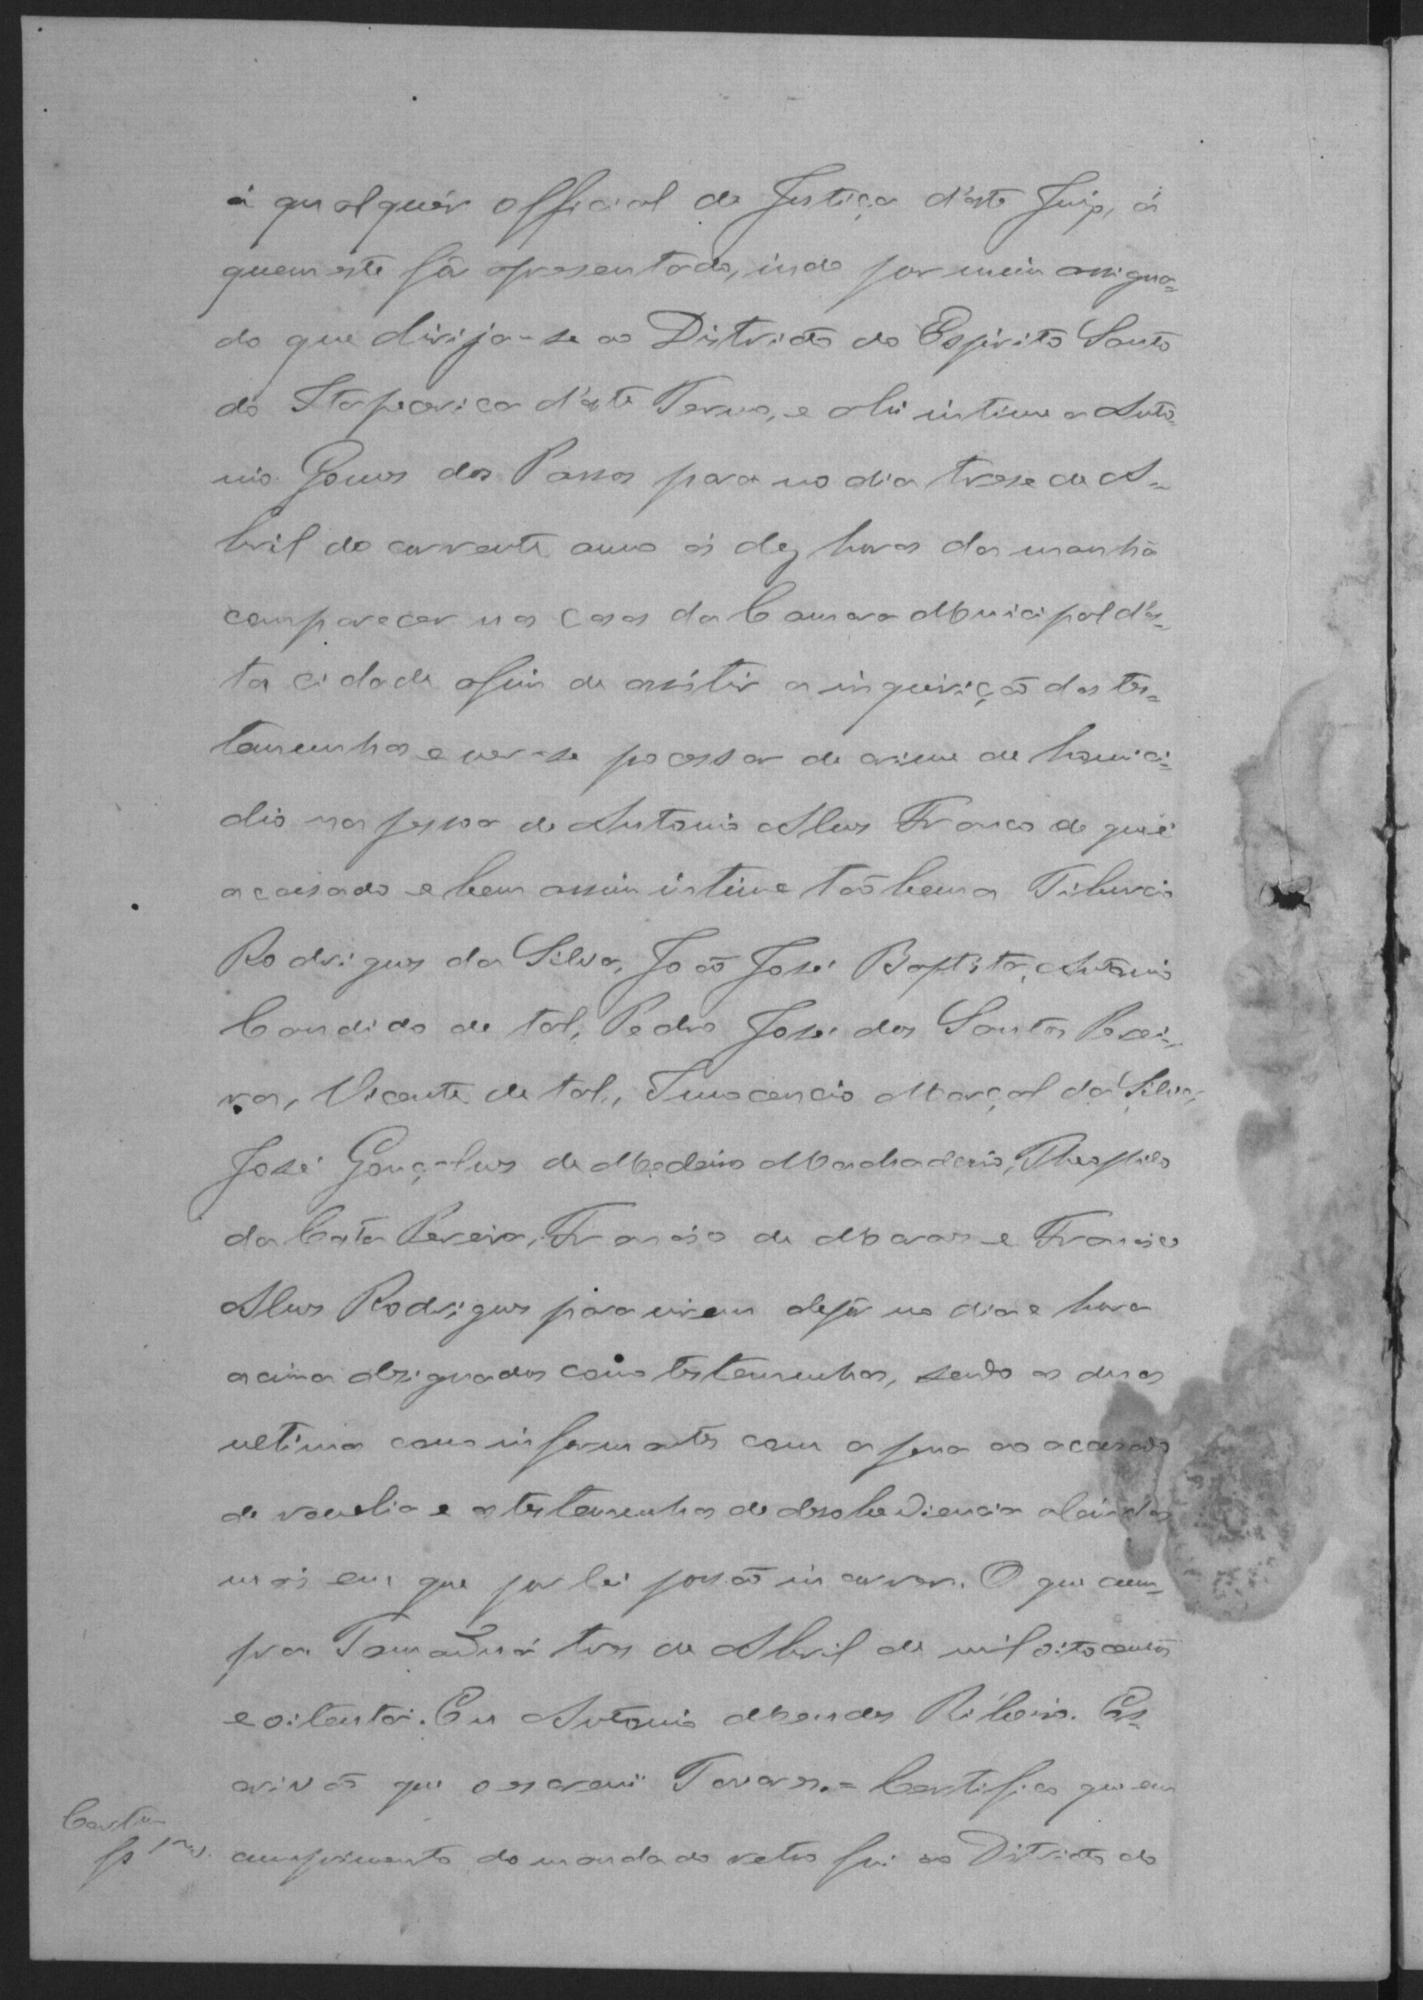 á qualquér official de Justiça d'éste Juizo, á
quem este fôr apresentado, indo por mim assigna-
do que dirija-se ao Districto do Espirito Santo
do Itapecerica d'éste Termo, e ahi intime a Anto-
nio Gomes dos Passos para no dia trese de A-
bril do corrente anno ás dez horas da manhã
comparecer na casa da Camara Municipal d'és-
ta cidade afim de assistir a inquirição das tes-
temunhas e ver-se pocessar de crime de homici-
dio na pessoa de Antonio Alves Franco de que é
accusado e bem assim intime tãobem a Tiburcio
Rodrigues da Silva, João José Baptista, Antonio
Candido de tal, Pedro José dos Santos Perei-
ra, Vicente de tal, Innocencio Marçal da Silva,
José Gonçalves de Medeiro Theophilo
da Costa Pereira, Francisco de Moraes e Francisco
Alves Rodrigues para virem depôr no dia e hora
acima designados como testemunhas, sendo as duas
ultimas como informantes com a pena ao accusado
de revelia e as testemunhas de desobediencia alem das
mais em que por lei possão incorrer. O que cum-
pra. Tamanduá tres de Abril de mil oito centos
e oitenta. Eu Antonio Mendes Ribeiro. Es-
crivão que o escrevi Tavares. = Certifico que em
cumprimento do mandado retro fui ao Districto do